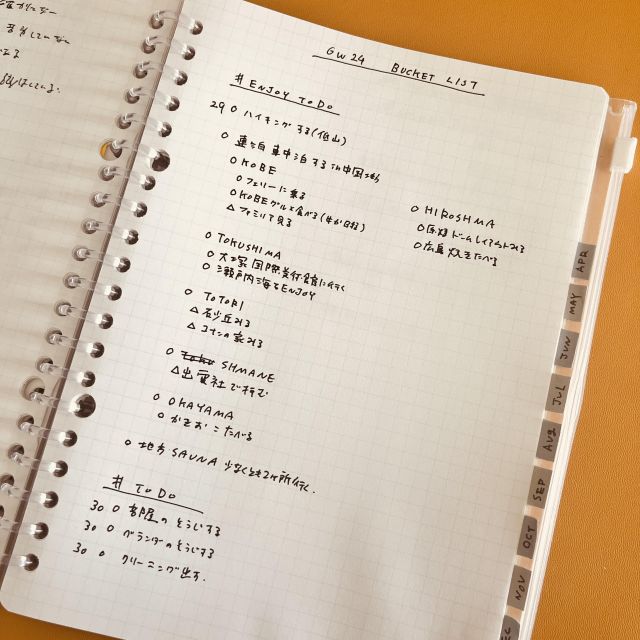 GW 24 BUCKET LIST
# ENJOY TO DO
29 O ハイキングする(低山)
O 車中泊する in 中国地方
O KOBE
O フェリーに乗る
O KOBEグルメ食べる(牛か日本酒)
△ ファミリアで見る
O TOKUSHIMA
O 大塚国際美術館に行く
O 瀬戸内海をENJOY
O TOTORI
△ 砂丘みる
△ コナンの家みる
O SHMANE
△ 出雲大社で
O OKAYAMA
O かきおこたべる
O 地方 SAUNA 少なくとも2ヶ所行く.
O HIROSHMA
O 原爆ドーム みる
O 広島焼きたべる
# TO DO
30 O 部屋のそうじする
30 O ベランダのそうじする
30 O クリーニング出す.
APR
MAY
JUN
JUL
AUG
SEP
OCT
NOV